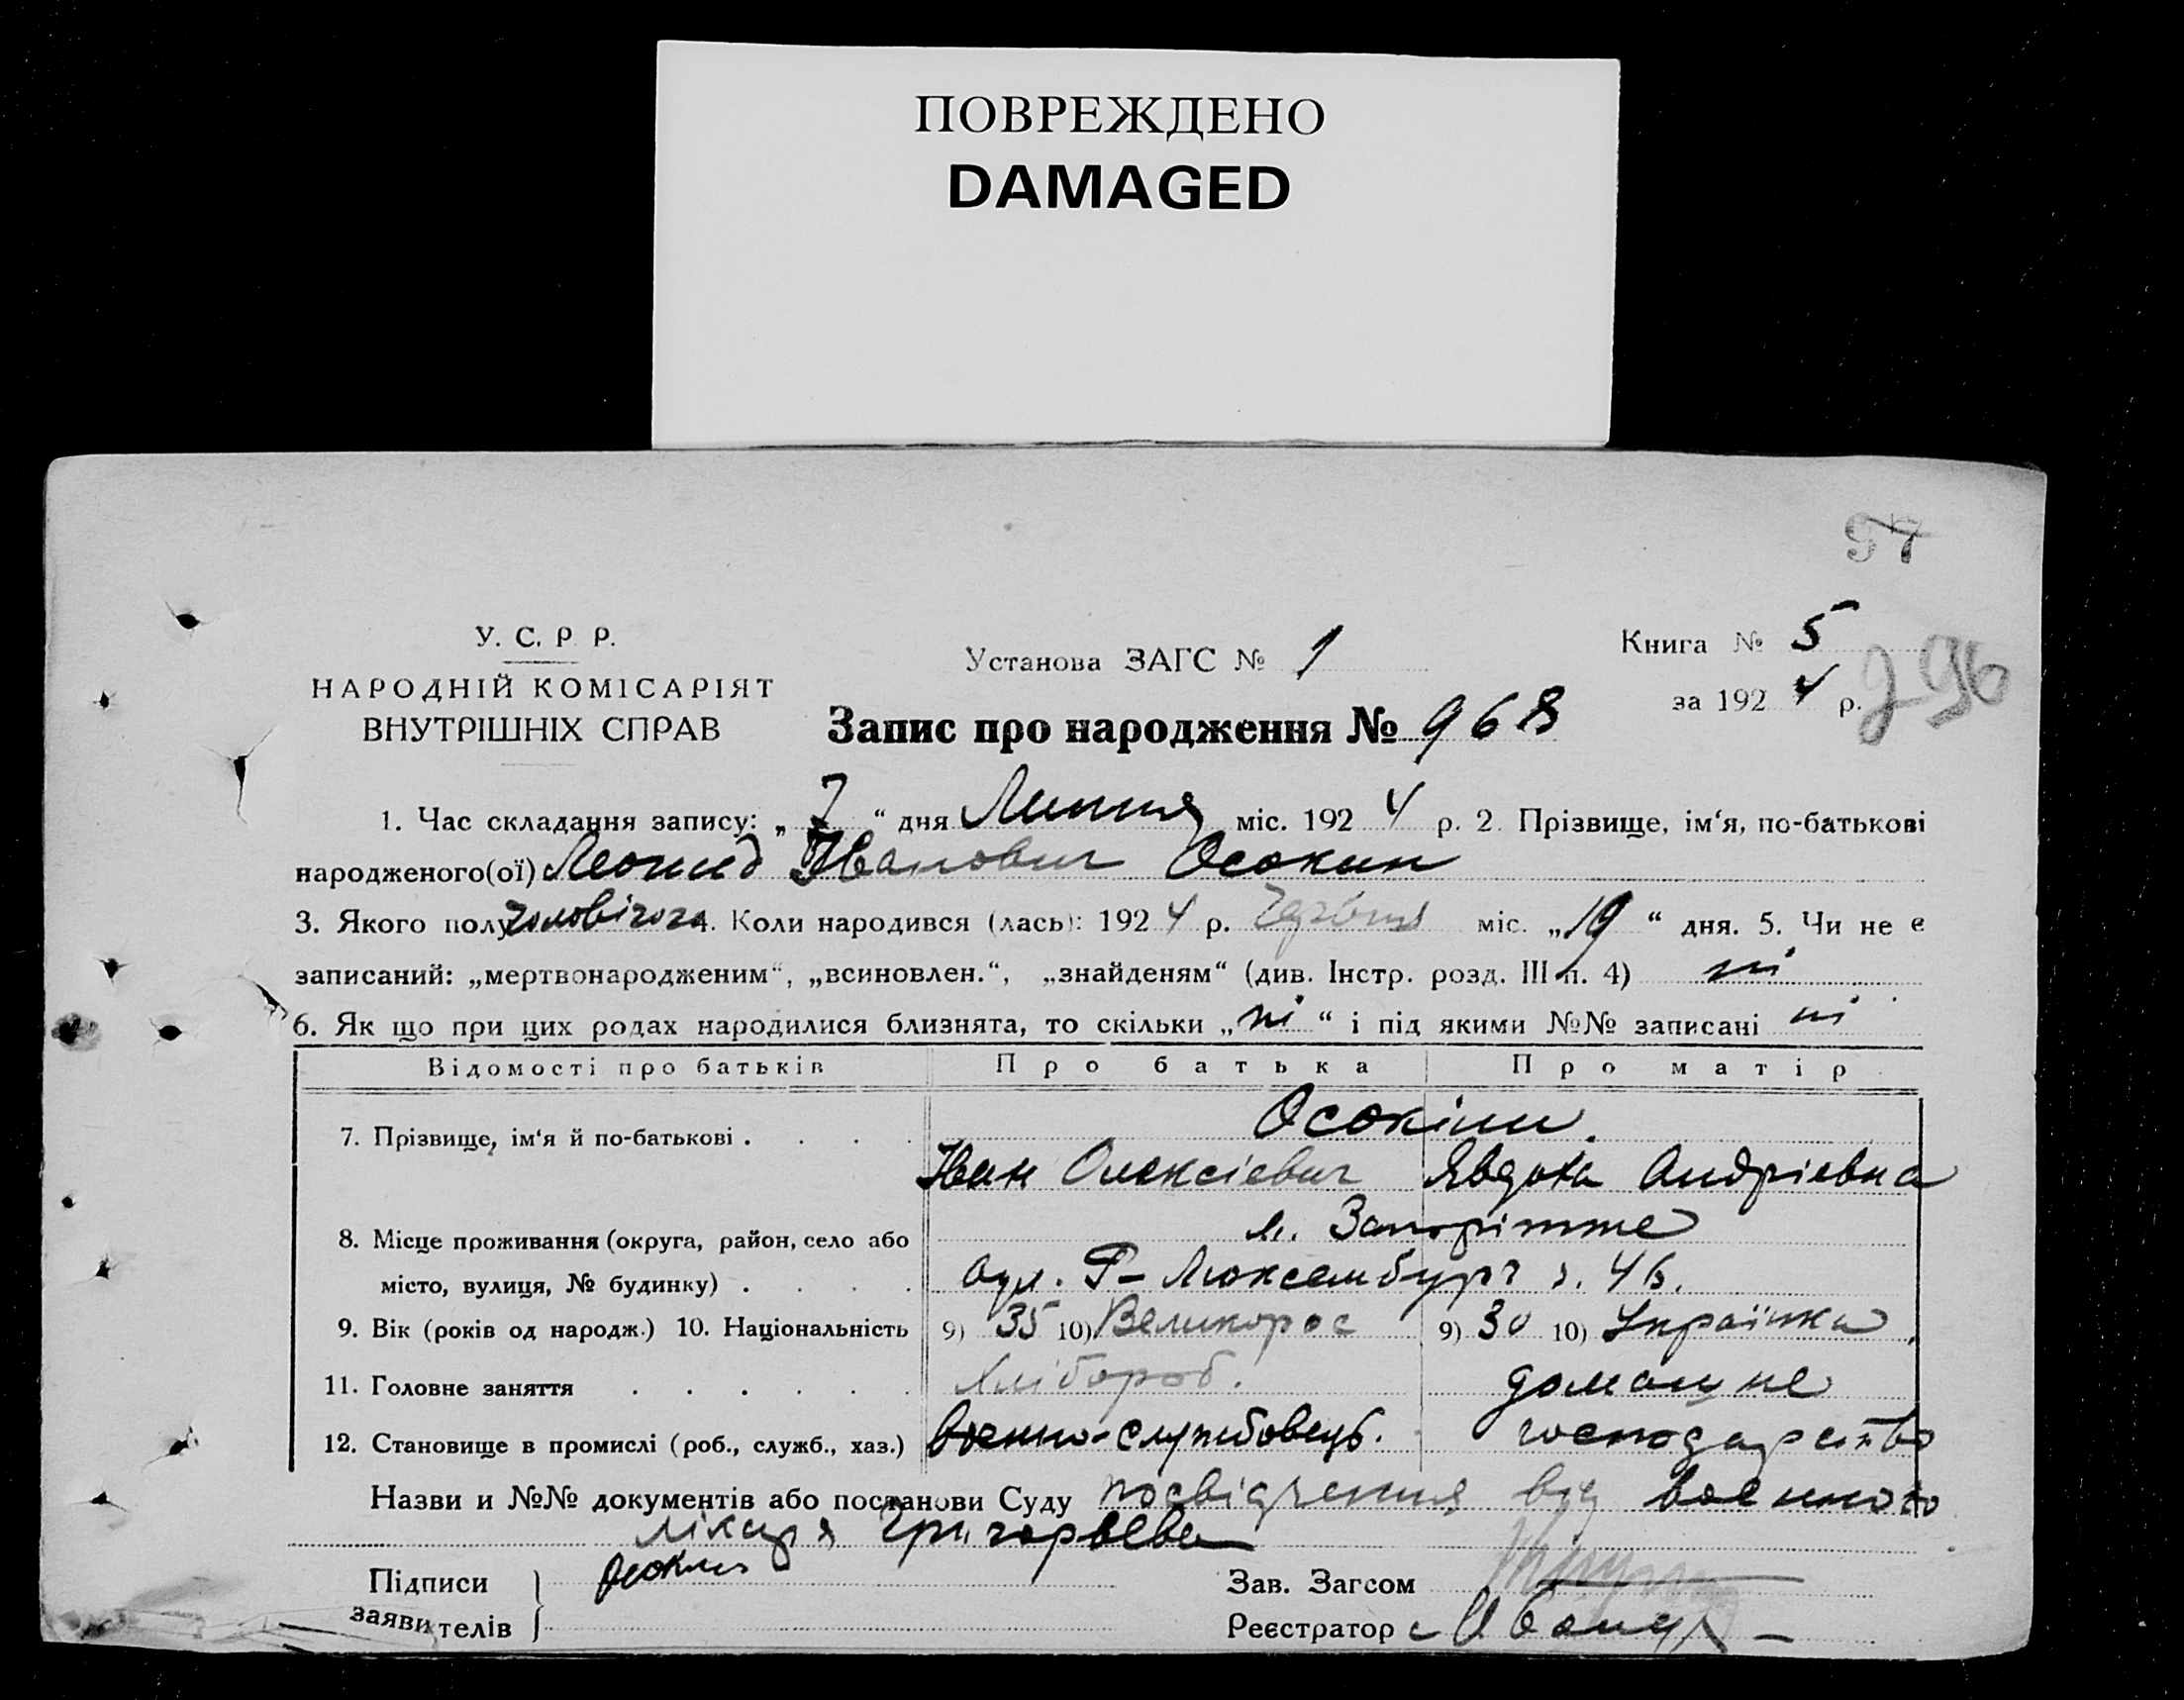 ПОВРЕЖДЕНО
DAMAGED
57
У. С. Р. Р.
НАРОДНІЙ КОМІСАРІЯТ
ВНУТРІШНІХ СПРАВ
Установа ЗАГС № 1
Книга № 5
за 1924 р.
296
Запис про народження № 968
1. Час складання запису: „7“ дня Липня міс. 1924 р. 2. Прізвище, ім‘я, по-батькові
народженого(ої) Леонид Иванович Осокин
3. Якого полу чоловічого 4. Коли народився (лась): 1924 р. Червня міс. „19“ дня. 5. Чи не є
записаний: „мертвонародженим“, „всиновлен.“, „знайденям“ (див. Інстр. розд. III п. 4) ні
6. Як що при цих родах народилися близнята, то скільки „ні“ і під якими №№ записані ні
Відомості про батьків Про батька Про матір
Осокіни.
7. Прізвище, ім‘я й по-батькові . . . .
Иван Олексієвич Явдоха Андріевна
м. Запоріжже
8. Місце проживання (округа, район, село або
місто, вулиця, № будинку) . . . . вул. Р-Люксембург 46.
9. Вік (років од народж.) 10. Національність 9) 35 10) Великорос 9) 30 10) Українка
11. Головне заняття . . . . . . Хлібороб. домашнє
12. Становище в промислі (роб., служб., хаз.) военно-службовець. господарство
Назви и №№ документів або постанови Суду посвідчення від военного
лікаря Григорьева
Підписи
заявителів
Осокин
Зав. Загсом
Реєстратор